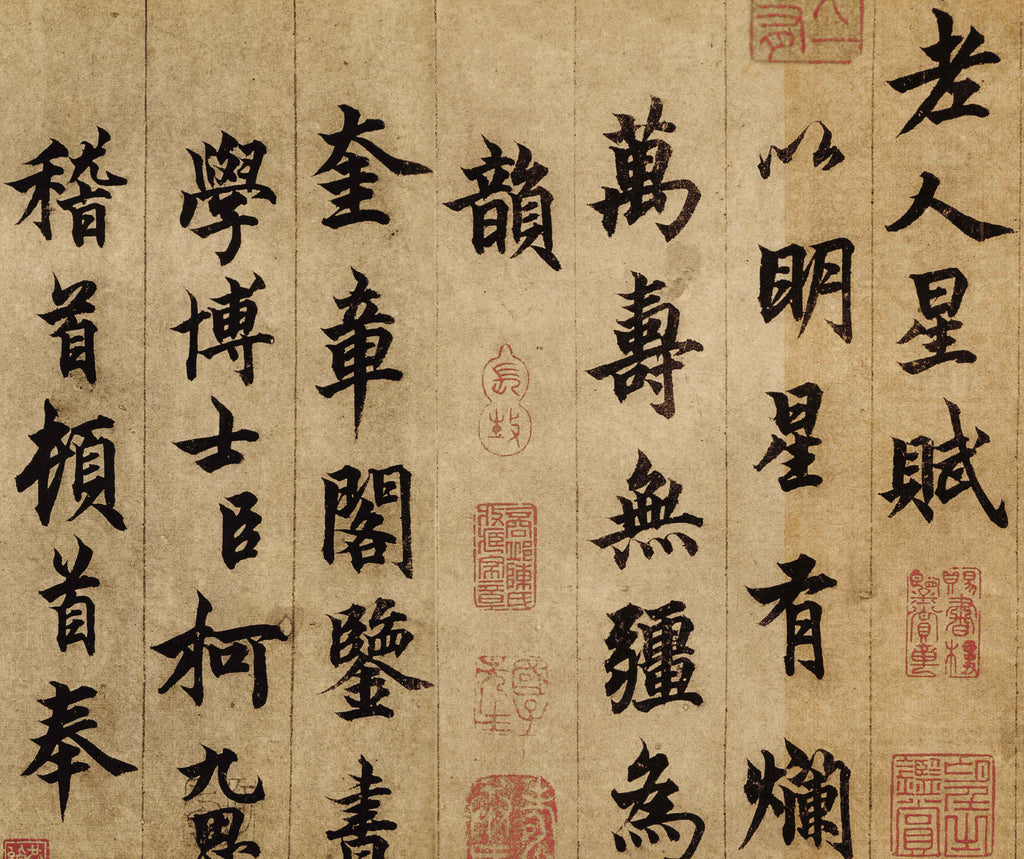 老人星賦
以明星有爛
萬壽無疆為
韻
奎章閣鑒書
學博士臣柯九思
稽首頓首奉